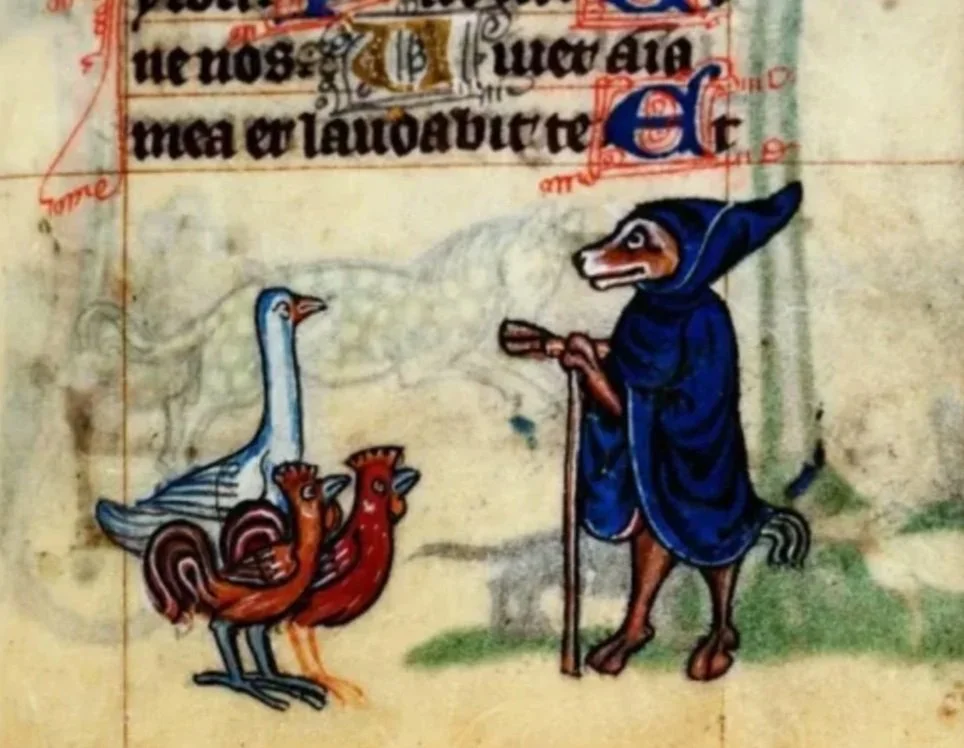 ne nos: Uiuet aīa
mea et laudabit te Et